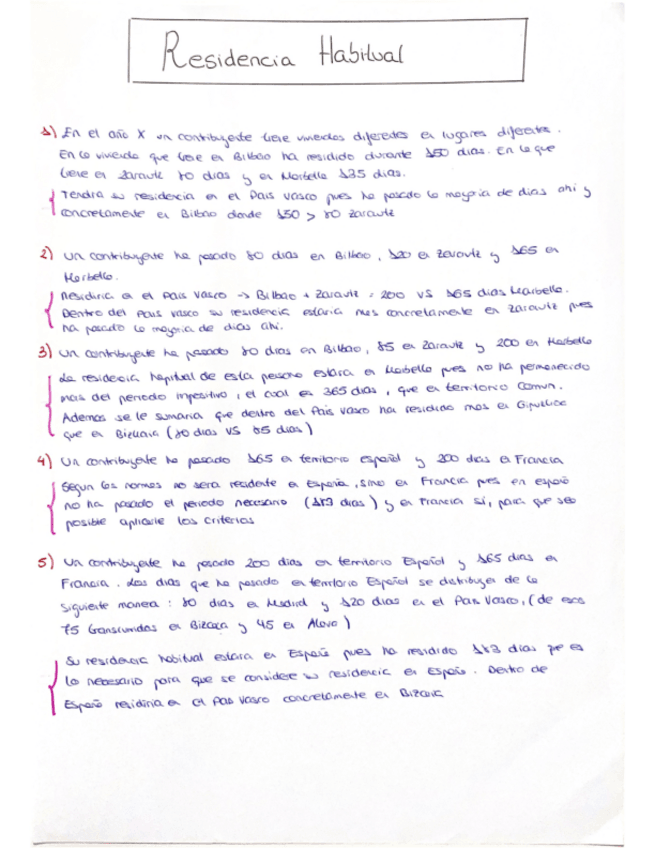 Residencia Habitual
1) En el año X un contribuyente tiene viviendas diferentes en lugares diferentes.
En la vivienda que tiene en Bilbao ha residido durante 150 dias. En la que
tiene en Zarautz 80 dias y en Marbella 135 dias.
Tendra su residencia en el Pais Vasco pues ha pasado la mayoria de dias ahi y
concretamente en Bilbao donde 150 > 80 Zarautz
2) Un contribuyente ha pasado 80 dias en Bilbao, 120 en Zarautz y 165 en
Marbella.
Residiria en el Pais Vasco -> Bilbao + Zarautz = 200 VS 165 dias Marbella.
Dentro del Pais vasco su residencia estaria mas concretamente en Zarautz pues
ha pasado la mayoria de dias ahi.
3) Un contribuyente ha pasado 80 dias en Bilbao, 85 en Zarautz y 200 en Marbella
La residencia habitual de esta persona estara en Marbella pues no ha permanecido
mas del periodo impositivo, el cual en 365 dias, que en territorio comun.
Ademas se le sumaria que dentro del Pais Vasco ha residido mas en Gipuzkoa
que en Bizkaia (80 dias VS 85 dias)
4) Un contribuyente ha pasado 165 en territorio español y 200 dias en Francia
Segun las normas no sera residente en España, sino en Francia pues en españa
no ha pasado el periodo necesario (183 dias) y en Francia si, para que sea
posible aplicarle los criterios
5) Un contribuyente ha pasado 200 dias en territorio Español y 165 dias en
Francia. Los dias que ha pasado en territorio Español se distribuyen de la
siguiente manera: 80 dias en Madrid y 120 dias en el Pais Vasco, (de esos
75 transcurridos en Bizcaia y 45 en Alava)
Su residencia habitual estara en España pues ha residido 183 dias que es
lo necesario para que se considere su residencia en España. Dentro de
España residiria en el Pais Vasco concretamente en Bizcaia